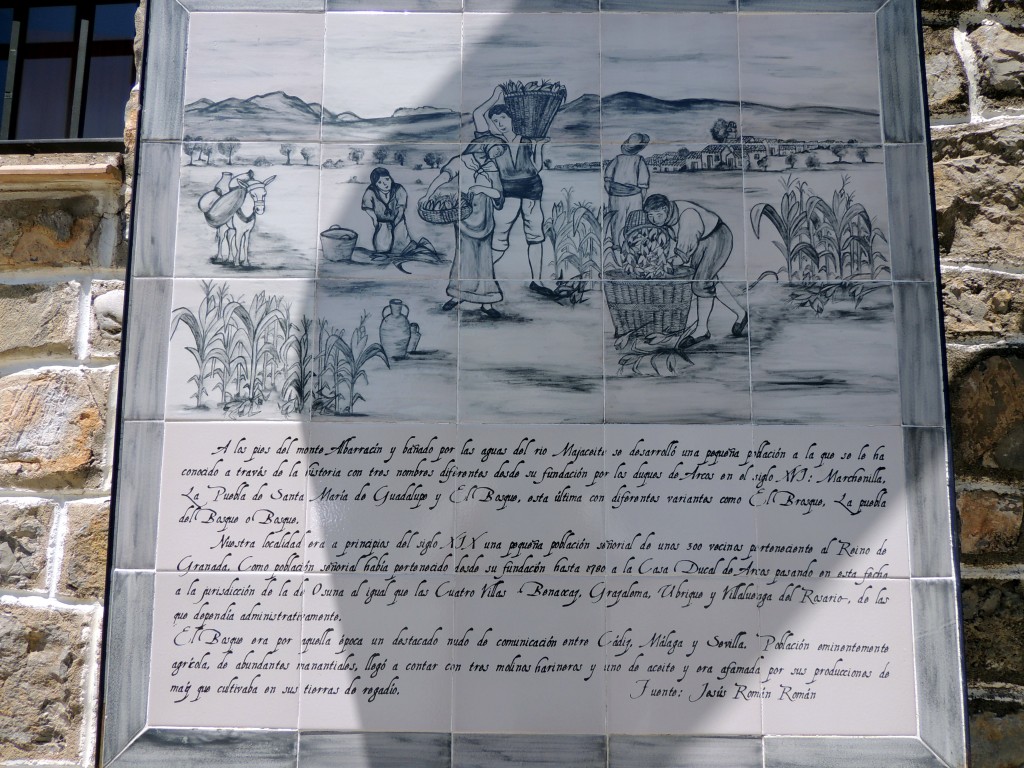 A los pies del monte Albarracín y bañado por las aguas del rio Majaceite se desarrolló una pequeña población a la que se le ha
conocido a través de la historia con tres nombres diferentes desde su fundación por los duques de Arcos en el siglo XVI: Marchenilla,
La Puebla de Santa María de Guadalupe y El Bosque, esta última con diferentes variantes como El Brosque, La puebla
del Bosque o Bosque.
Nuestra localidad era a principios del siglo XIX una pequeña población señorial de unos 300 vecinos perteneciente al Reino de
Granada. Como población señorial había pertenecido desde su fundación hasta 1780 a la Casa Ducal de Arcos pasando en esta fecha
a la jurisdicción de la de Osuna al igual que las Cuatro Villas - Benaocaz, Grazalema, Ubrique y Villaluenga del Rosario-, de las
que dependía administrativamente.
El Bosque era por aquella época un destacado nudo de comunicación entre Cádiz, Málaga y Sevilla. Población eminentemente
agrícola, de abundantes manantiales, llegó a contar con tres molinos harineros y uno de aceite y era afamada por sus producciones de
maíz que cultivaba en sus tierras de regadío. Fuente: Jesús Román Román